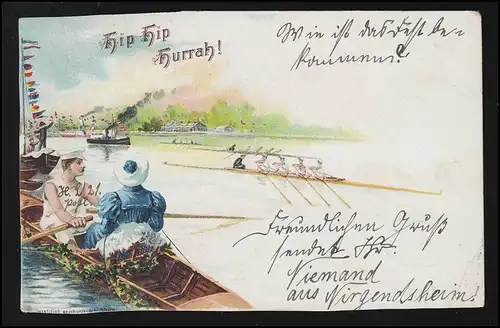 Hip Hip
Hurrah!
Wie ist das Fest be-
kommen?
Freundlichen Gruß
sendet Ihr
Niemand
aus Nirgendsheim!